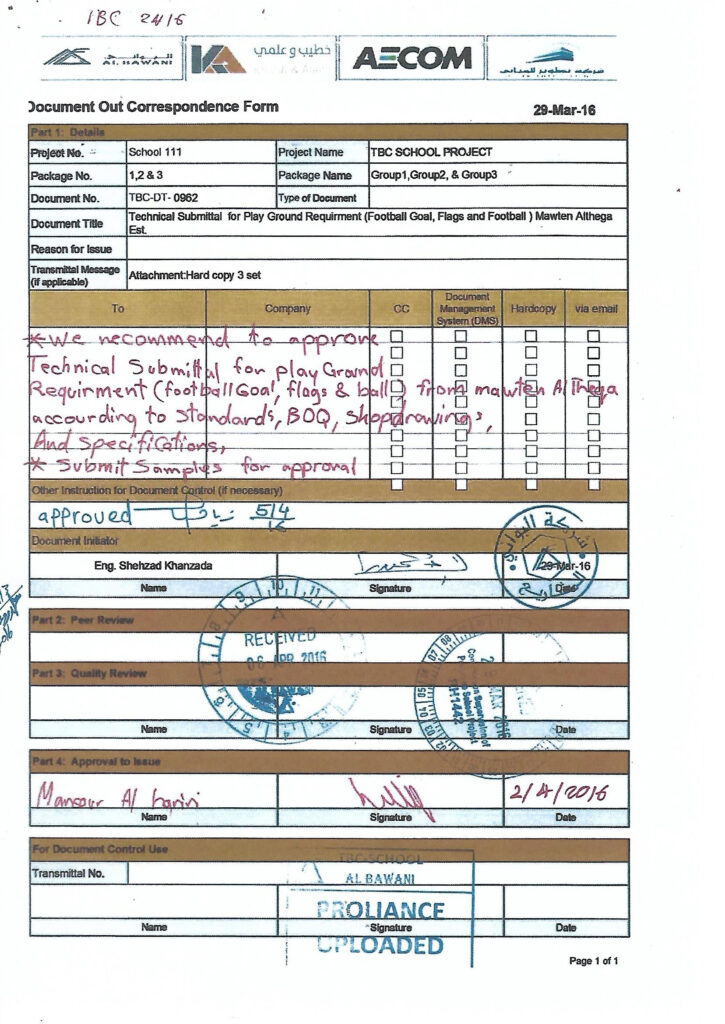 IBC 2416
البواني
AL BAWANI
KA
خطيب وعلمي
AECOM
شركة تطوير المباني
Document Out Correspondence Form
29-Mar-16
Part 1: Details
Project No. School 111 Project Name TBC SCHOOL PROJECT
Package No. 1,2 & 3 Package Name Group1,Group2, & Group3
Document No. TBC-DT- 0962 Type of Document
Document Title Technical Submittal for Play Ground Requirment (Football Goal, Flags and Football ) Mawten Althega Est.
Reason for Issue
Transmittal Message (if applicable) Attachment:Hard copy 3 set
To Company CC Document Management System (DMS) Hardcopy via email
* We recommend to approve
Technical Submittal for play Ground
Requirment (football Goal, flags & ball) from mawten Al Thega
accourding to standards, BOQ, Shopdrawings,
And specifications,
* Submit Samples for approval
Other Instruction for Document Control (if necessary)
approved 5/4 16
Document Initiator
Eng. Shehzad Khanzada 29-Mar-16
Name Signature Date
شركة البواني
Part 2: Peer Review
RECEIVED
06 APR 2016
Part 3: Quality Review
MAR 2016
Name Signature Date
Part 4: Approval to Issue
Mansour Al hariri 2/4/2016
Name Signature Date
For Document Control Use
TBC-SCHOOL
Transmittal No.
AL BAWANI
PROLIANCE
Name Signature Date
UPLOADED
Page 1 of 1